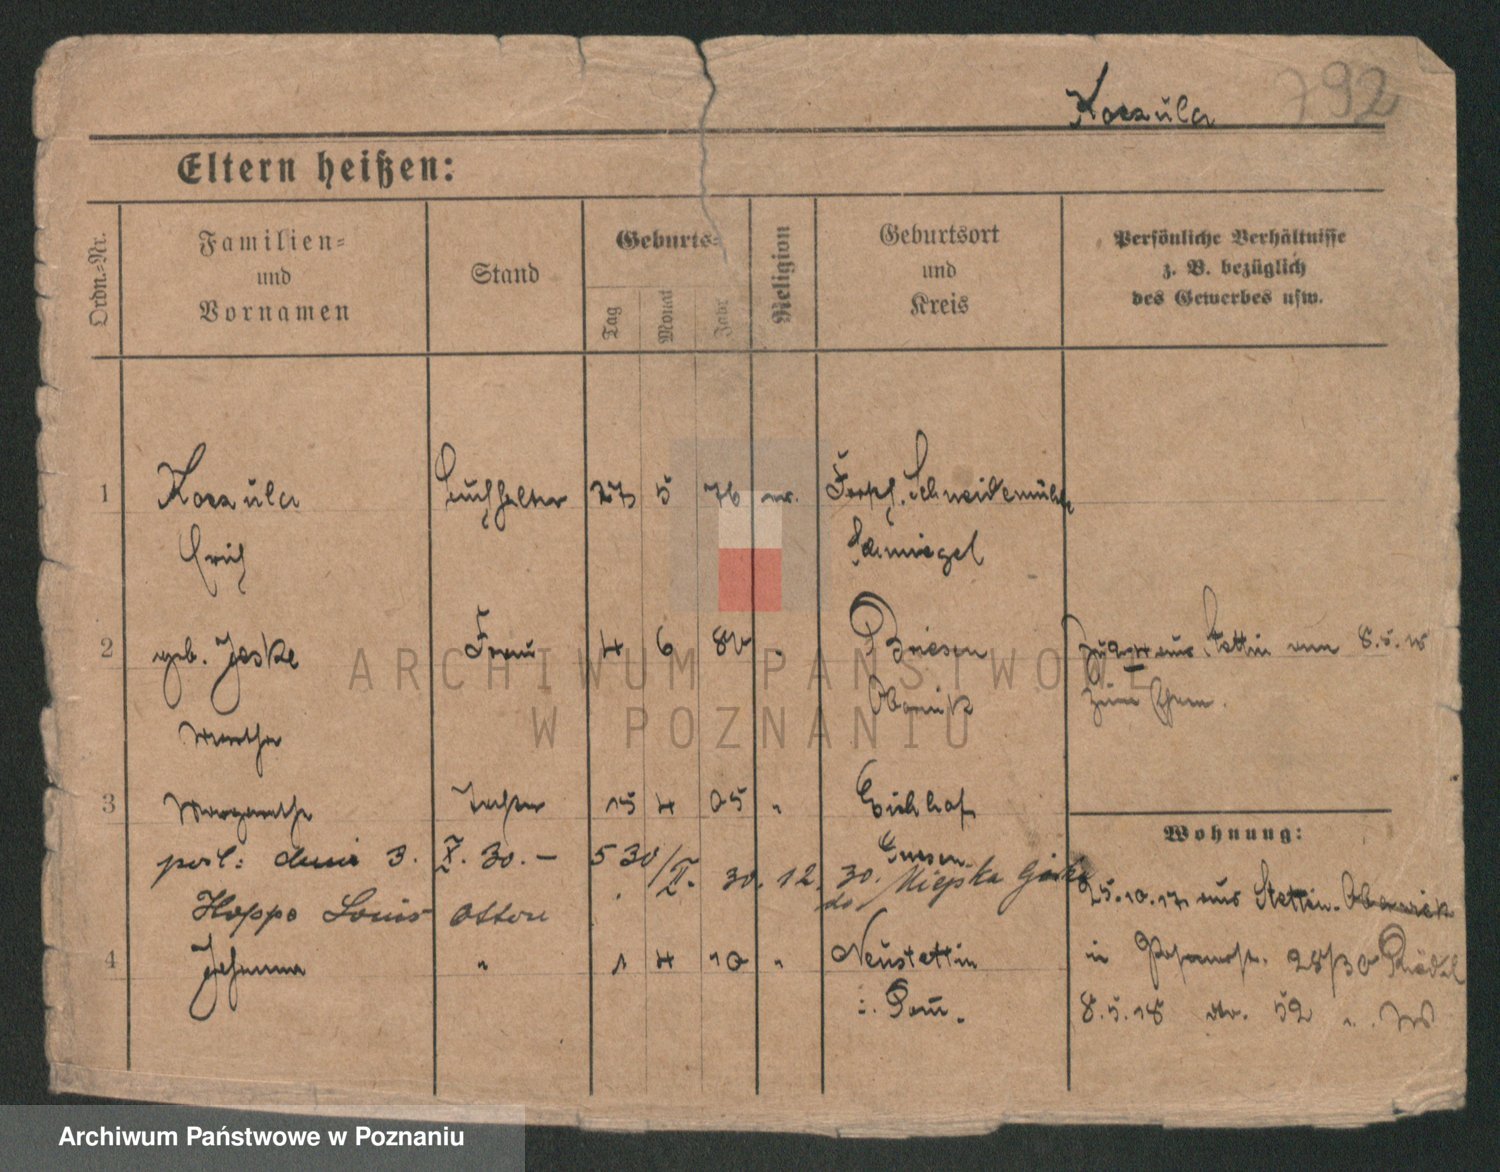 792
Koszula
Eltern heißen:
Ordn.-Nr.
Familien-
und
Vornamen
Stand
Geburts-
Tag
Monat
Jahr
Religion
Geburtsort
und
Kreis
Persönliche Verhältnisse
z. B. bezüglich
des Gewerbes usw.
1 Koszula Buchhalter 27 5 76 Forsth. Schneidemühle
Erich Schmiegel
2 geb. Jeske Frau 4 6 80 " Briesen
aus Stettin 8.5.18
Obornik
zum Ehem.
Martha
3 Margarethe Tochter 15 4 05 " Eichhof
Wohnung:
posl: dnia 3. X. 30. — 5 30/X. 30. 12. 30. Gnesen
do Miejska Górka
25.10.17 aus Stettin Obornick
Hoppe Louis Ottou
4 Johanna " 1 4 10 " Neustettin
in 28/30
i. Pom.
8.5.18 52
ARCHIWUM PAŃSTWOWE
W POZNANIU
Archiwum Państwowe w Poznaniu